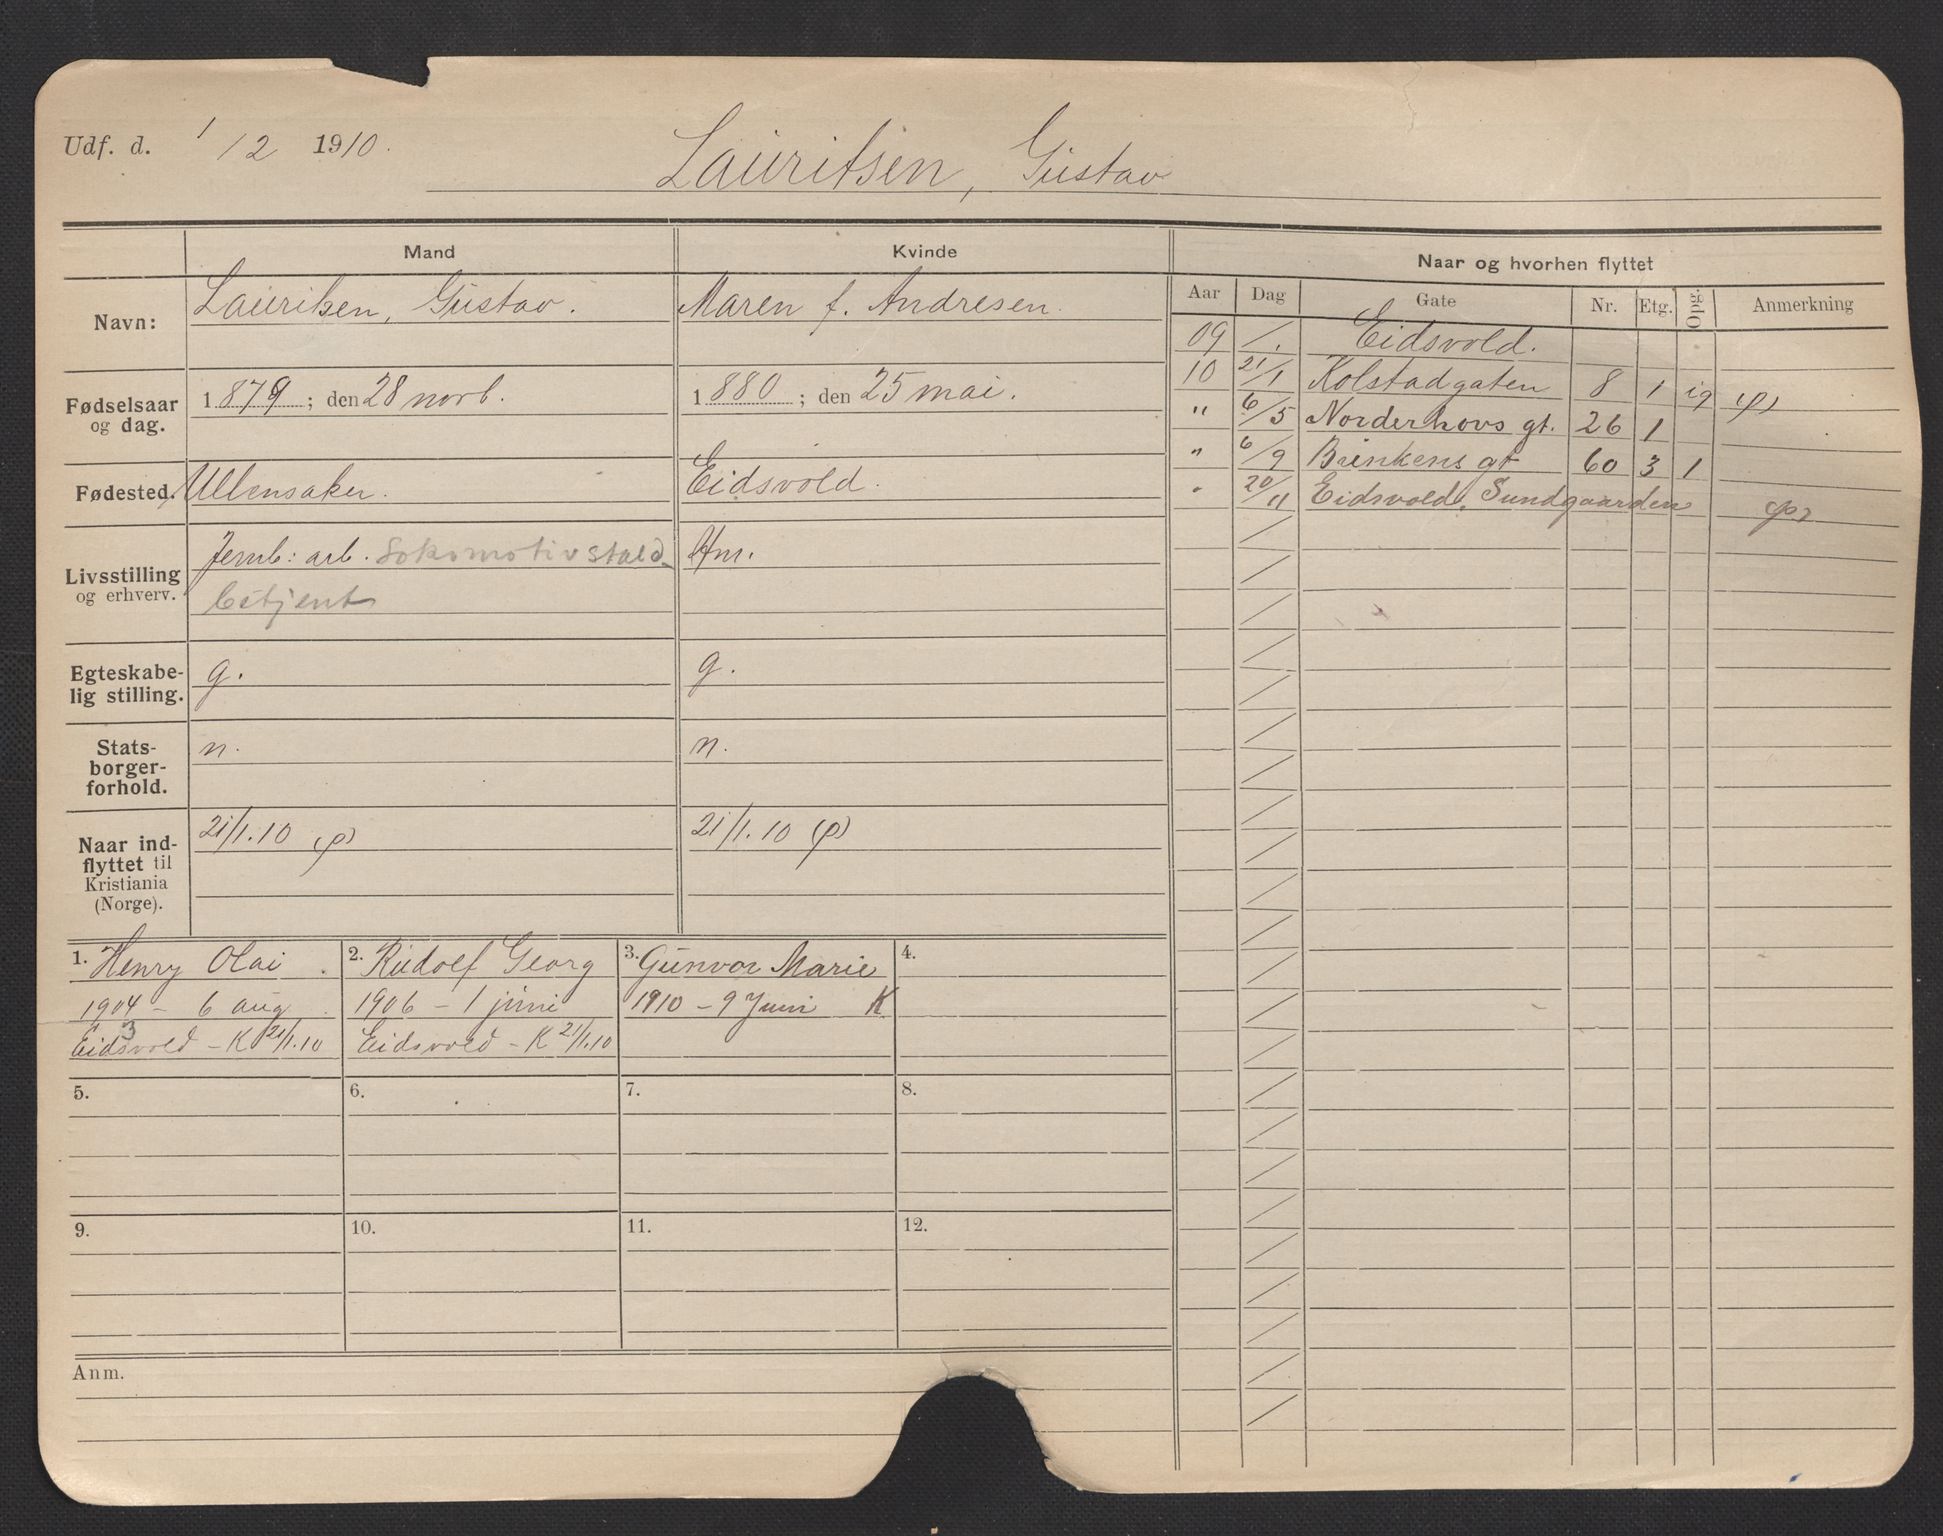 Udf. d. 1/12 1910.
Lauritsen, Gustav
Mand
Kvinde
Naar og hvorhen flyttet
Navn:
Lauritsen, Gustav.
Maren f. Andresen.
Fødselsaar og dag.
1879; den 28 novb.
1880; den 25 mai.
Fødested.
Ullensaker.
Eidsvold.
Livsstilling og erhverv.
Jernb: arb. Lokomotivstald-
betjent
Hm.
Egteskabe-
lig stilling.
g.
g.
Stats-
borger-
forhold.
n.
n.
Naar ind-
flyttet til
Kristiania
(Norge).
21/1.10 (p)
21/1.10 (p)
Aar Dag Gate Nr. Etg. Opg. Anmerkning
09 /. Eidsvold.
10 21/1 Kolstadgaten 8 1 ig (p)
" 6/5 Norderhovs gt. 26 1
" 6/9 Brinkens gt 60 3 1
" 20/11 Eidsvold, Sundgaarden (p)
1. Henry Olai.
1904 - 6 aug.
3
Eidsvold - K 21/1.10
2. Rudolf Georg
1906 - 1 juni
Eidsvold - K 21/1.10
3. Gunvor Marie
1910 - 9 Juni K
4.
5.
6.
7.
8.
9.
10.
11.
12.
Anm.